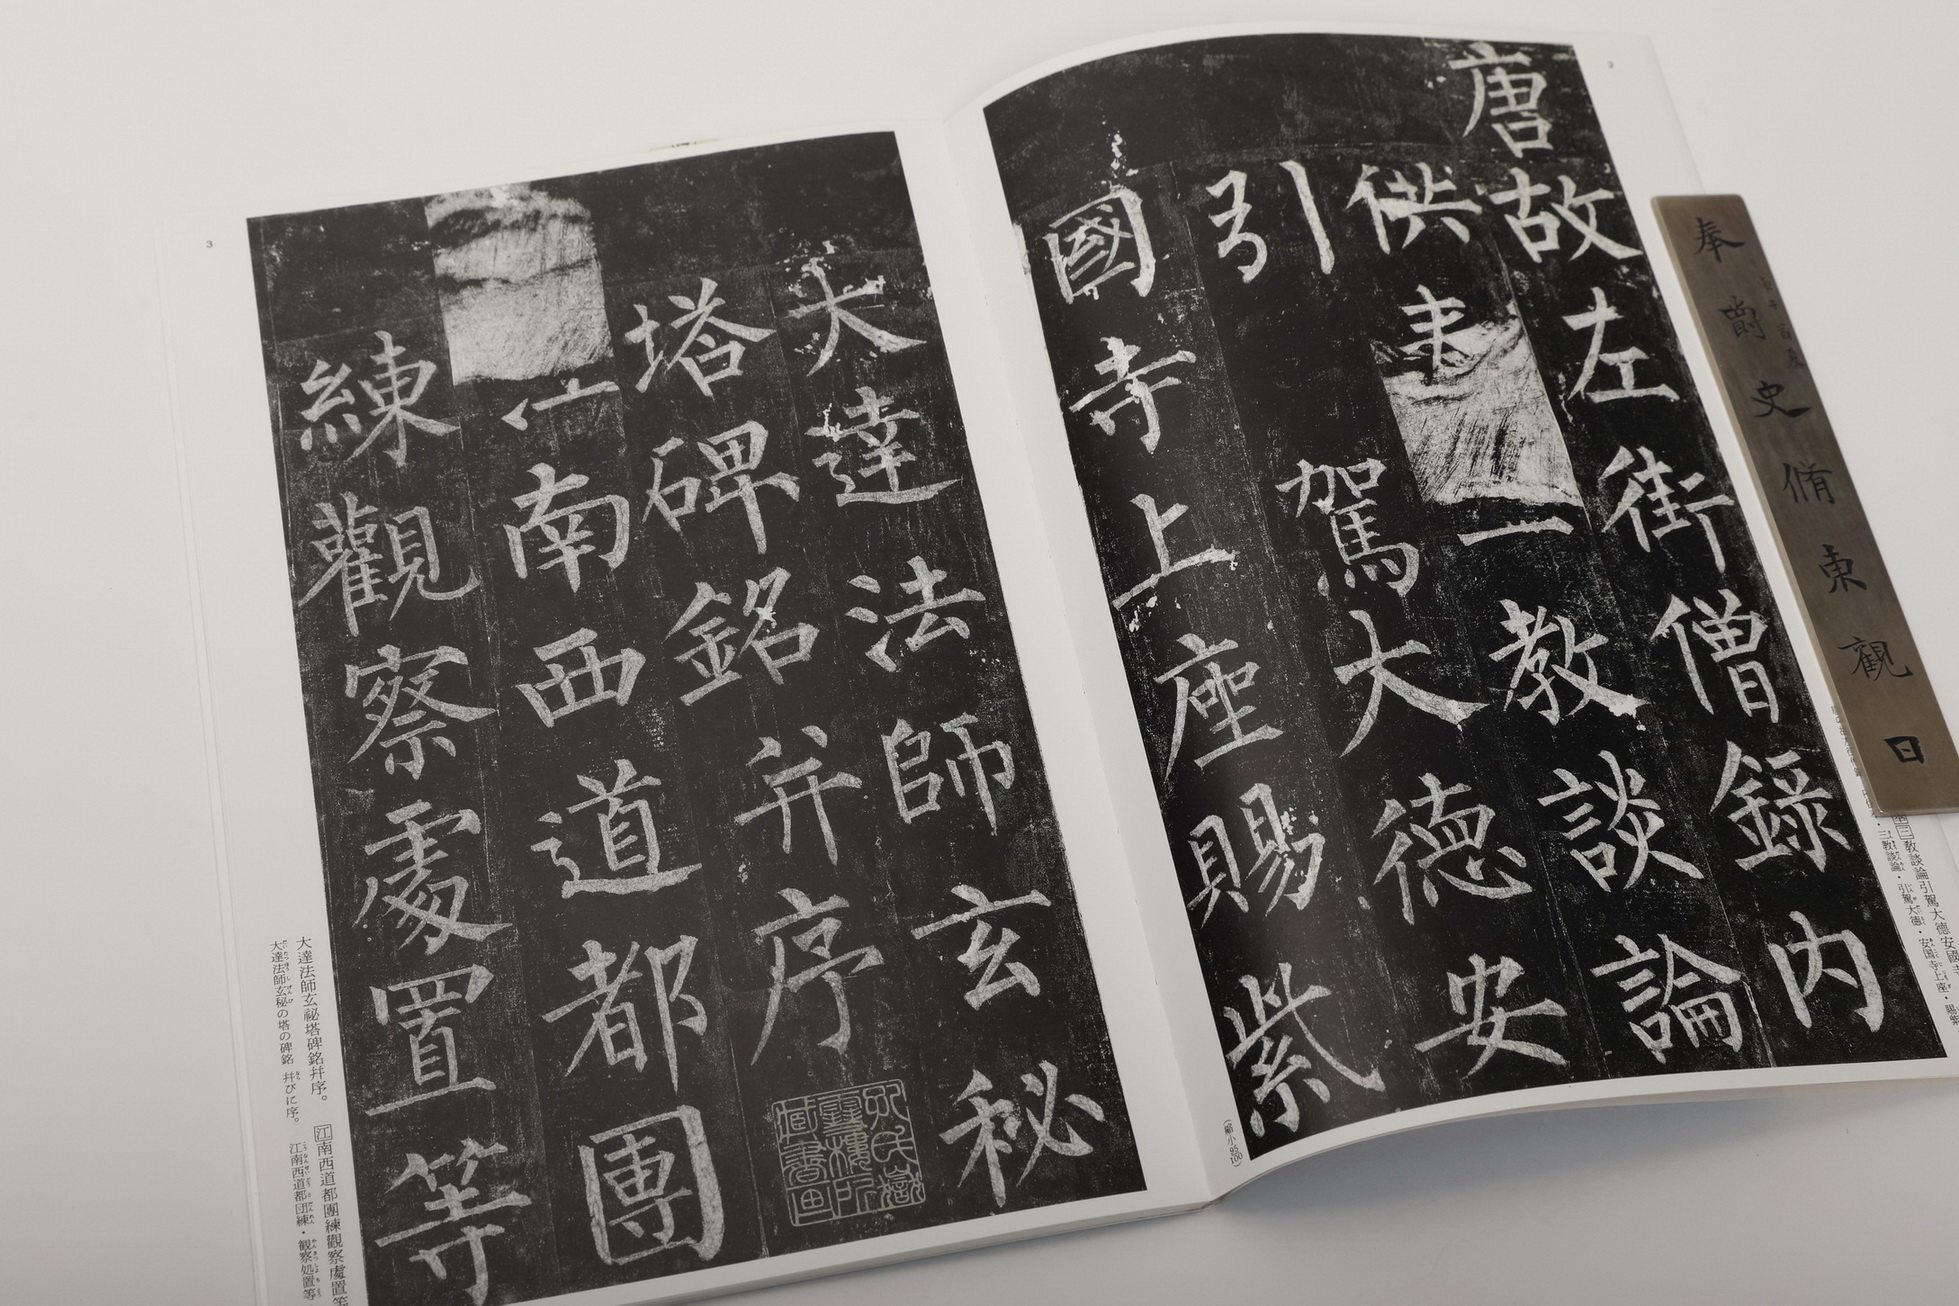 2
唐故左街僧錄內
供一教談論
引駕大德安
國寺上座賜紫
三教談論引駕大德安國
三教談論・引駕大徳・安国寺上座・賜紫
(縮小95/100)
奉爵史脩東觀日
3
大達法師玄秘
塔碑銘并序
孔氏嶽雪樓所藏書画
南西道都團
練觀察處置等
大達法師玄祕塔碑銘幷序。 江南西道都團練觀察處置等
大達法師玄秘の塔の碑銘 幷びに序。 江南西道都団練・観察処置等